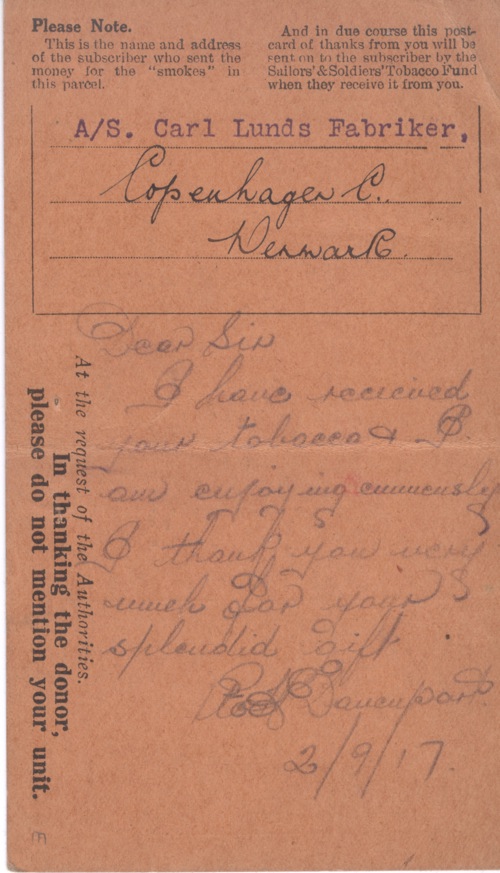 Please Note.
This is the name and address
of the subscriber who sent the
money for the "smokes" in
this parcel.
And in due course this post-
card of thanks from you will be
sent on to the subscriber by the
Sailors' & Soldiers' Tobacco Fund
when they receive it from you.
A/S. Carl Lunds Fabriker,
Copenhagen C.
Denmark.
Dear Sir
I have recieved
your tobacco & I
am enjoying emmensly
I thank you very
much for your
splendid Gift
Davenport.
2/9/17.
At the request of the Authorities.
In thanking the donor,
please do not mention your unit.